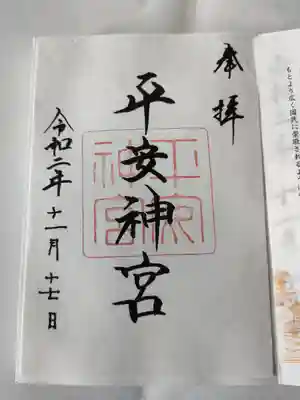 もとより広く国民に崇敬されるよ
奉拝
平安神宮
平安
神宮
令和二年十一月十七日